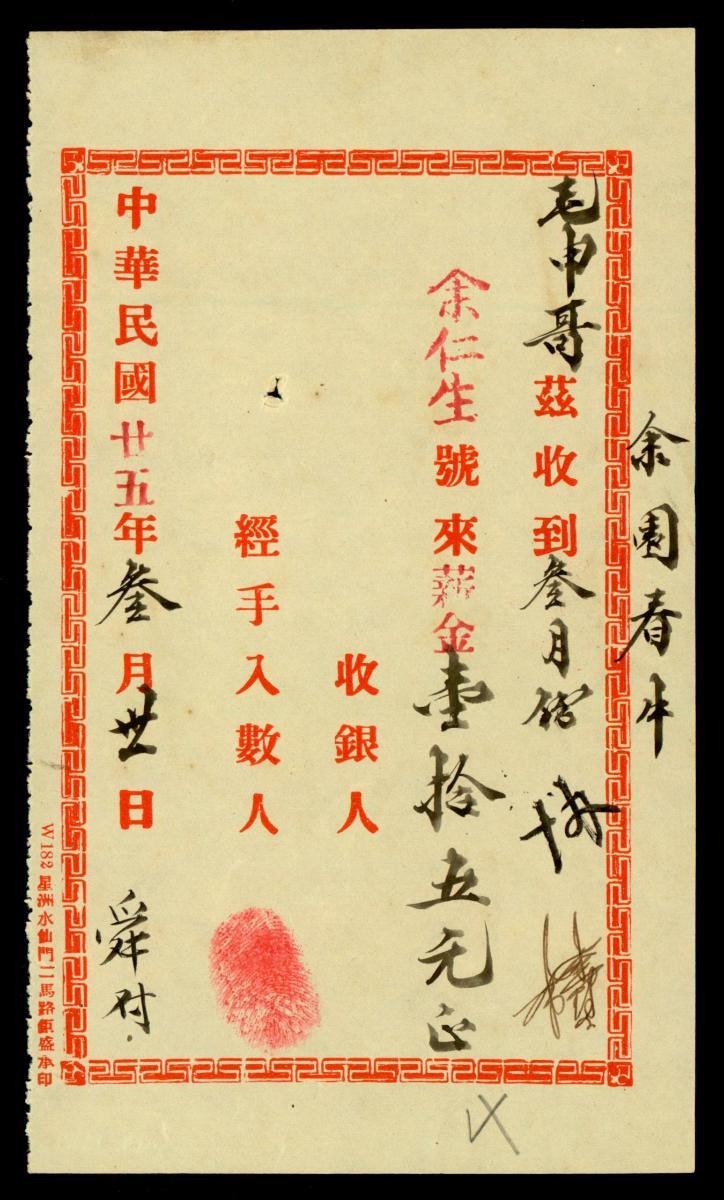 余園春牛
申哥茲收到叁月份
余仁生號來薪金壹拾五元正
收銀人
經手入數人
中華民國廿五年叁月卅日 舜付
W182 星洲水仙門二馬路 盛承印